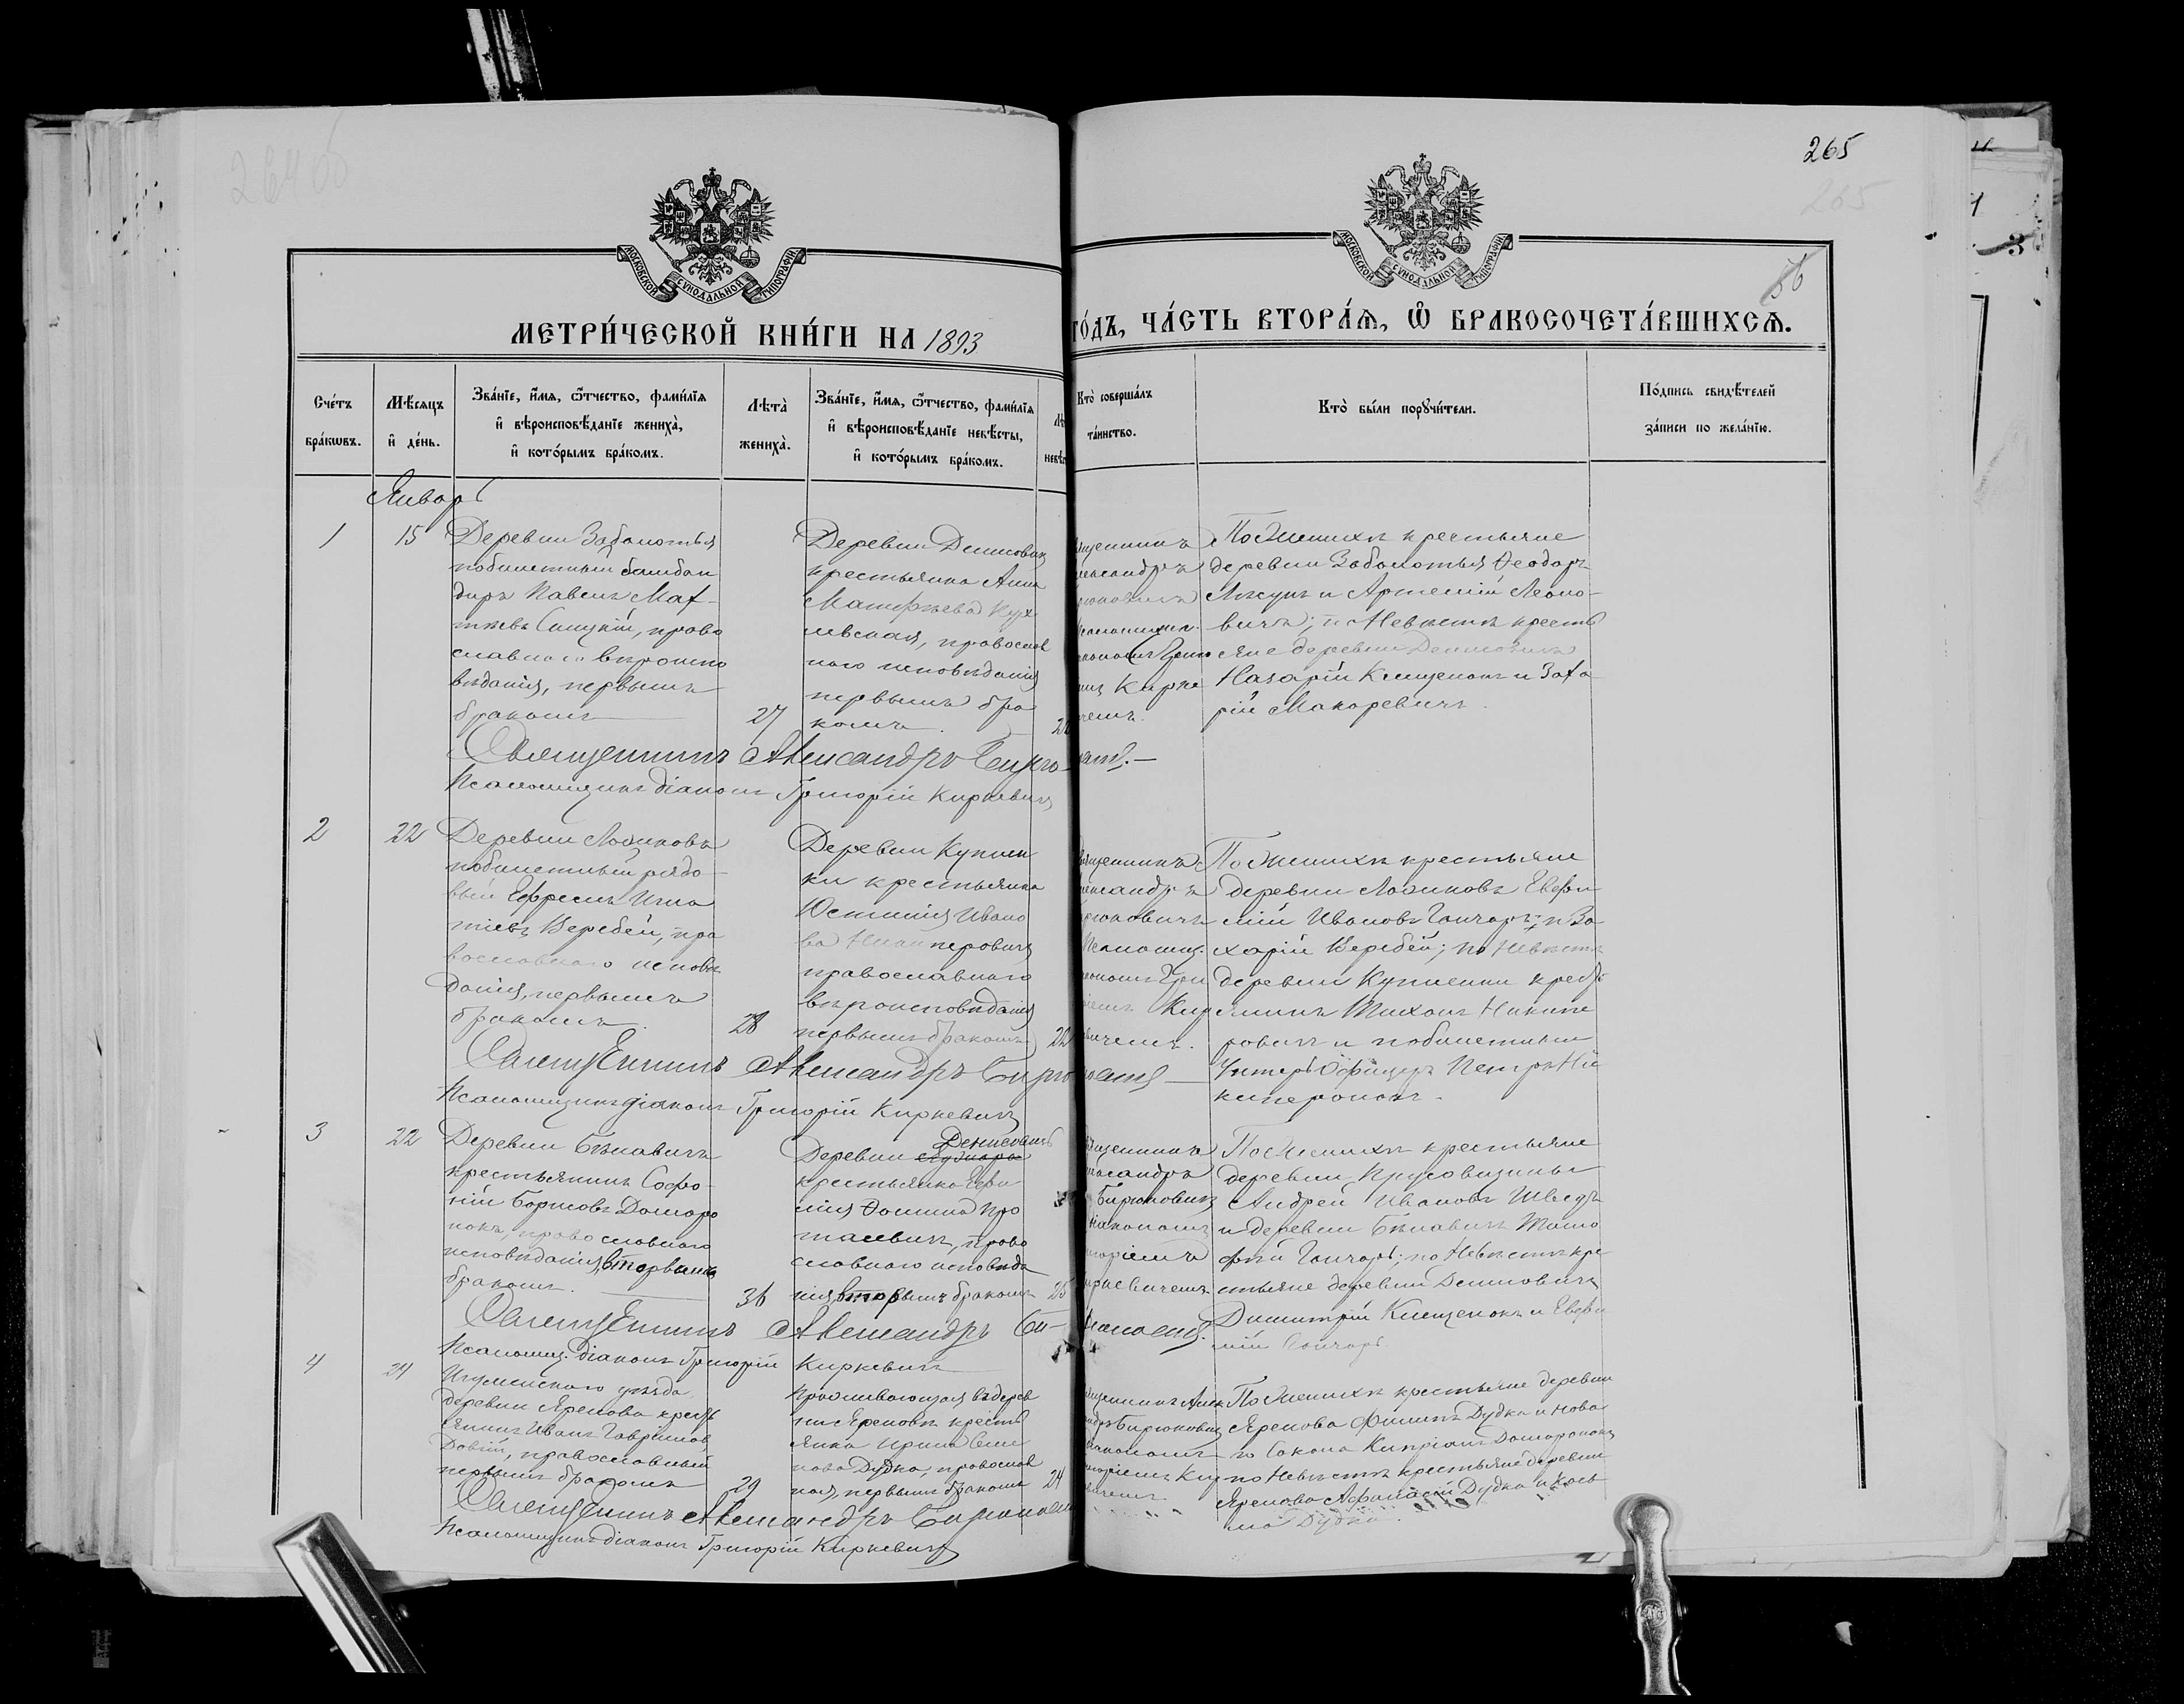 264 об
265
265
56
МОСКОВСКОЙ СУНОДАЛЬНОЙ ТИПОГРАФІИ
МОСКОВСКОЙ СУНОДАЛЬНОЙ ТИПОГРАФІИ
МЕТРИ́ЧЕСКОЙ КНИ́ГИ НА 1893
ГО́ДЪ, ЧА́СТЬ ВТОРА́Ѧ, Ѽ БРАКОСОЧЕТА́ВШИХСѦ.
Сче́тъ
бра́кѡвъ.
Мѣ́сяцъ
и҆ де́нь.
Зва́нїе, и҆́мѧ, ѻ҆́тчество, фами́лїѧ
и҆ вѣроисповѣ́данїе жениха̀,
и҆ кото́рымъ бра́комъ.
Лѣта̀
жениха̀.
Зва́нїе, и҆́мѧ, ѻ҆́тчество, фами́лїѧ
и҆ вѣроисповѣ́данїе невѣ́сты,
и҆ кото́рымъ бра́комъ.
Кто̀ соверша́лъ
та́инство.
Кто̀ бы́ли порꙋчи́тели.
По́дпись свидѣ́телей
за́писи по жела́нїю.
Январь
1
15
Деревни Заболотья
побилетный бомбан
диръ Павелъ Мат-
ѳѣевъ Слуцкій, право
славнаго вѣроиспо
вѣданія, первымъ
бракомъ
27
Деревни Денисовичъ
крестьянка Анна
Матфѣева
православ
наго исповѣданія
первымъ бра
комъ.
По Женихѣ крестьяне
деревни Заболотья Ѳеодоръ
и Артемій Леоно-
вичъ; по Невѣстѣ кресть
яне деревни Денисовичъ
Назарій Клищенокъ и Заха
рій Макаревичъ.
Священникъ Александръ Бирю-
Псаломщикъ діаконъ Григорій Киркевичъ
2
22
Деревни Логиновъ
побилетный рядо-
вый Ефремъ Игна
тіевъ Веребей, пра
вославнаго исповѣ
данія, первымъ
бракомъ.
28
Деревни Куплен
ки крестьянка
Юстинія Ивано
ва Никиперовичъ
православнаго
вѣроисповѣданія
первымъ бракомъ
22
По Женихѣ крестьяне
деревни Логиновъ Евфи
мій Ивановъ Гончаръ и За
харій Веребей; по Невѣстѣ
деревни Купленки кресть
янинъ Тихонъ Никипе
ровичъ и побилетный
Унтеръ Офицеръ Петръ Ни
киперовичъ.
Священникъ Александръ Бирю
Псаломщикъ діаконъ Григорій Киркевичъ
3
22
Деревни Бѣлавичъ
крестьянинъ Софро-
ній Борисовъ Домаро
нокъ, православнаго
исповѣданія, вторымъ
бракомъ.
36
Денисовичъ
Деревни
крестьянка Евфи
мія Ѳомина Про
тасевичъ, право
славнаго исповѣда
нія вторымъ бракомъ
25
Бирюковичъ
По Женихѣ крестьяне
деревни Прусовщины
Андрей Ивановъ Шведъ
и деревни Бѣлавичъ Тимо
фей Гончаръ; по Невѣстѣ кре
стьяне деревни Денисовичъ
Димитрій Клищенокъ и Евфи
мій Гончаръ
Священникъ Александръ Би-
Псаломщ. діаконъ Григорій Киркевичъ
4
24
Игуменскаго уѣзда
деревни Яренова кресть
янинъ Иванъ Гавриловъ
Довгій, православный
первымъ бракомъ
29
проживающая въ дерев
ни Яреновѣ кресть
янка Ирина Семе
нова Дудка, православ
ная, первымъ бракомъ
24
По Женихѣ крестьяне деревни
Яренова Филипъ Дудка и Нова
го Сокола Кипріанъ Домаронокъ
по Невѣстѣ крестьяне деревни
Яренова Афанасій Дудка и Козь
ма Дудка.
Священникъ Александръ Бирюкович
Псаломщикъ діаконъ Григорій Киркевичъ